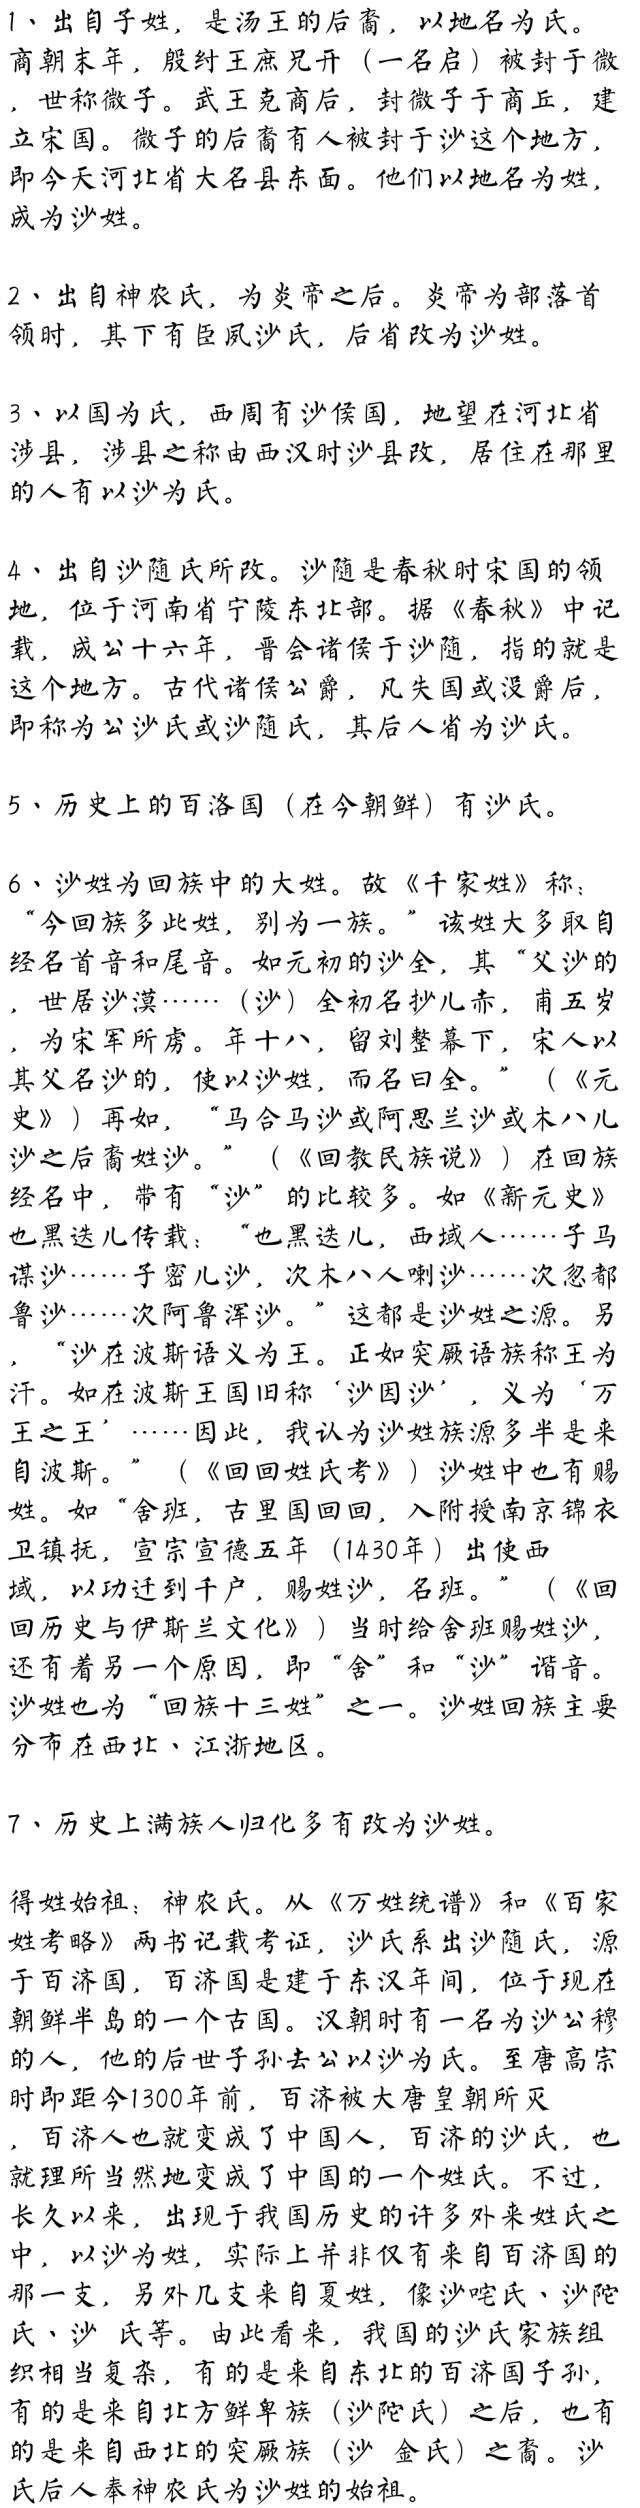 1、出自子姓，是汤王的后裔，以地名为氏。
商朝末年，殷纣王庶兄开（一名启）被封于微
，世称微子。武王克商后，封微子于商丘，建
立宋国。微子的后裔有人被封于沙这个地方，
即今天河北省大名县东面。他们以地名为姓，
成为沙姓。
2、出自神农氏，为炎帝之后。炎帝为部落首
领时，其下有臣夙沙氏，后省改为沙姓。
3、以国为氏，西周有沙侯国，地望在河北省
涉县，涉县之称由西汉时沙县改，居住在那里
的人有以沙为氏。
4、出自沙随氏所改。沙随是春秋时宋国的领
地，位于河南省宁陵东北部。据《春秋》中记
载，成公十六年，晋会诸侯于沙随，指的就是
这个地方。古代诸侯公爵，凡失国或没爵后，
即称为公沙氏或沙随氏，其后人省为沙氏。
5、历史上的百洛国（在今朝鲜）有沙氏。
6、沙姓为回族中的大姓。故《千家姓》称：
“今回族多此姓，别为一族。”该姓大多取自
经名首音和尾音。如元初的沙全，其“父沙的
，世居沙漠……（沙）全初名抄儿赤，甫五岁
，为宋军所虏。年十八，留刘整幕下，宋人以
其父名沙的，使以沙姓，而名曰全。”（《元
史》）再如，“马合马沙或阿思兰沙或木八儿
沙之后裔姓沙。”（《回教民族说》）在回族
经名中，带有“沙”的比较多。如《新元史》
也黑迭儿传载：“也黑迭儿，西域人……子马
谋沙……子密儿沙，次木八人喇沙……次忽都
鲁沙……次阿鲁浑沙。”这都是沙姓之源。另
，“沙在波斯语义为王。正如突厥语族称王为
汗。如在波斯王国旧称‘沙因沙’，义为‘万
王之王’……因此，我认为沙姓族源多半是来
自波斯。”（《回回姓氏考》）沙姓中也有赐
姓。如“舍班，古里国回回，入附授南京锦衣
卫镇抚，宣宗宣德五年（1430年）出使西
域，以功迁到千户，赐姓沙，名班。”（《回
回历史与伊斯兰文化》）当时给舍班赐姓沙，
还有着另一个原因，即“舍”和“沙”谐音。
沙姓也为“回族十三姓”之一。沙姓回族主要
分布在西北、江浙地区。
7、历史上满族人归化多有改为沙姓。
得姓始祖：神农氏。从《万姓统谱》和《百家
姓考略》两书记载考证，沙氏系出沙随氏，源
于百济国，百济国是建于东汉年间，位于现在
朝鲜半岛的一个古国。汉朝时有一名为沙公穆
的人，他的后世子孙去公以沙为氏。至唐高宗
时即距今1300年前，百济被大唐皇朝所灭
，百济人也就变成了中国人，百济的沙氏，也
就理所当然地变成了中国的一个姓氏。不过，
长久以来，出现于我国历史的许多外来姓氏之
中，以沙为姓，实际上并非仅有来自百济国的
那一支，另外几支来自夏姓，像沙咤氏、沙陀
氏、沙 氏等。由此看来，我国的沙氏家族组
织相当复杂，有的是来自东北的百济国子孙，
有的是来自北方鲜卑族（沙陀氏）之后，也有
的是来自西北的突厥族（沙 金氏）之裔。沙
氏后人奉神农氏为沙姓的始祖。